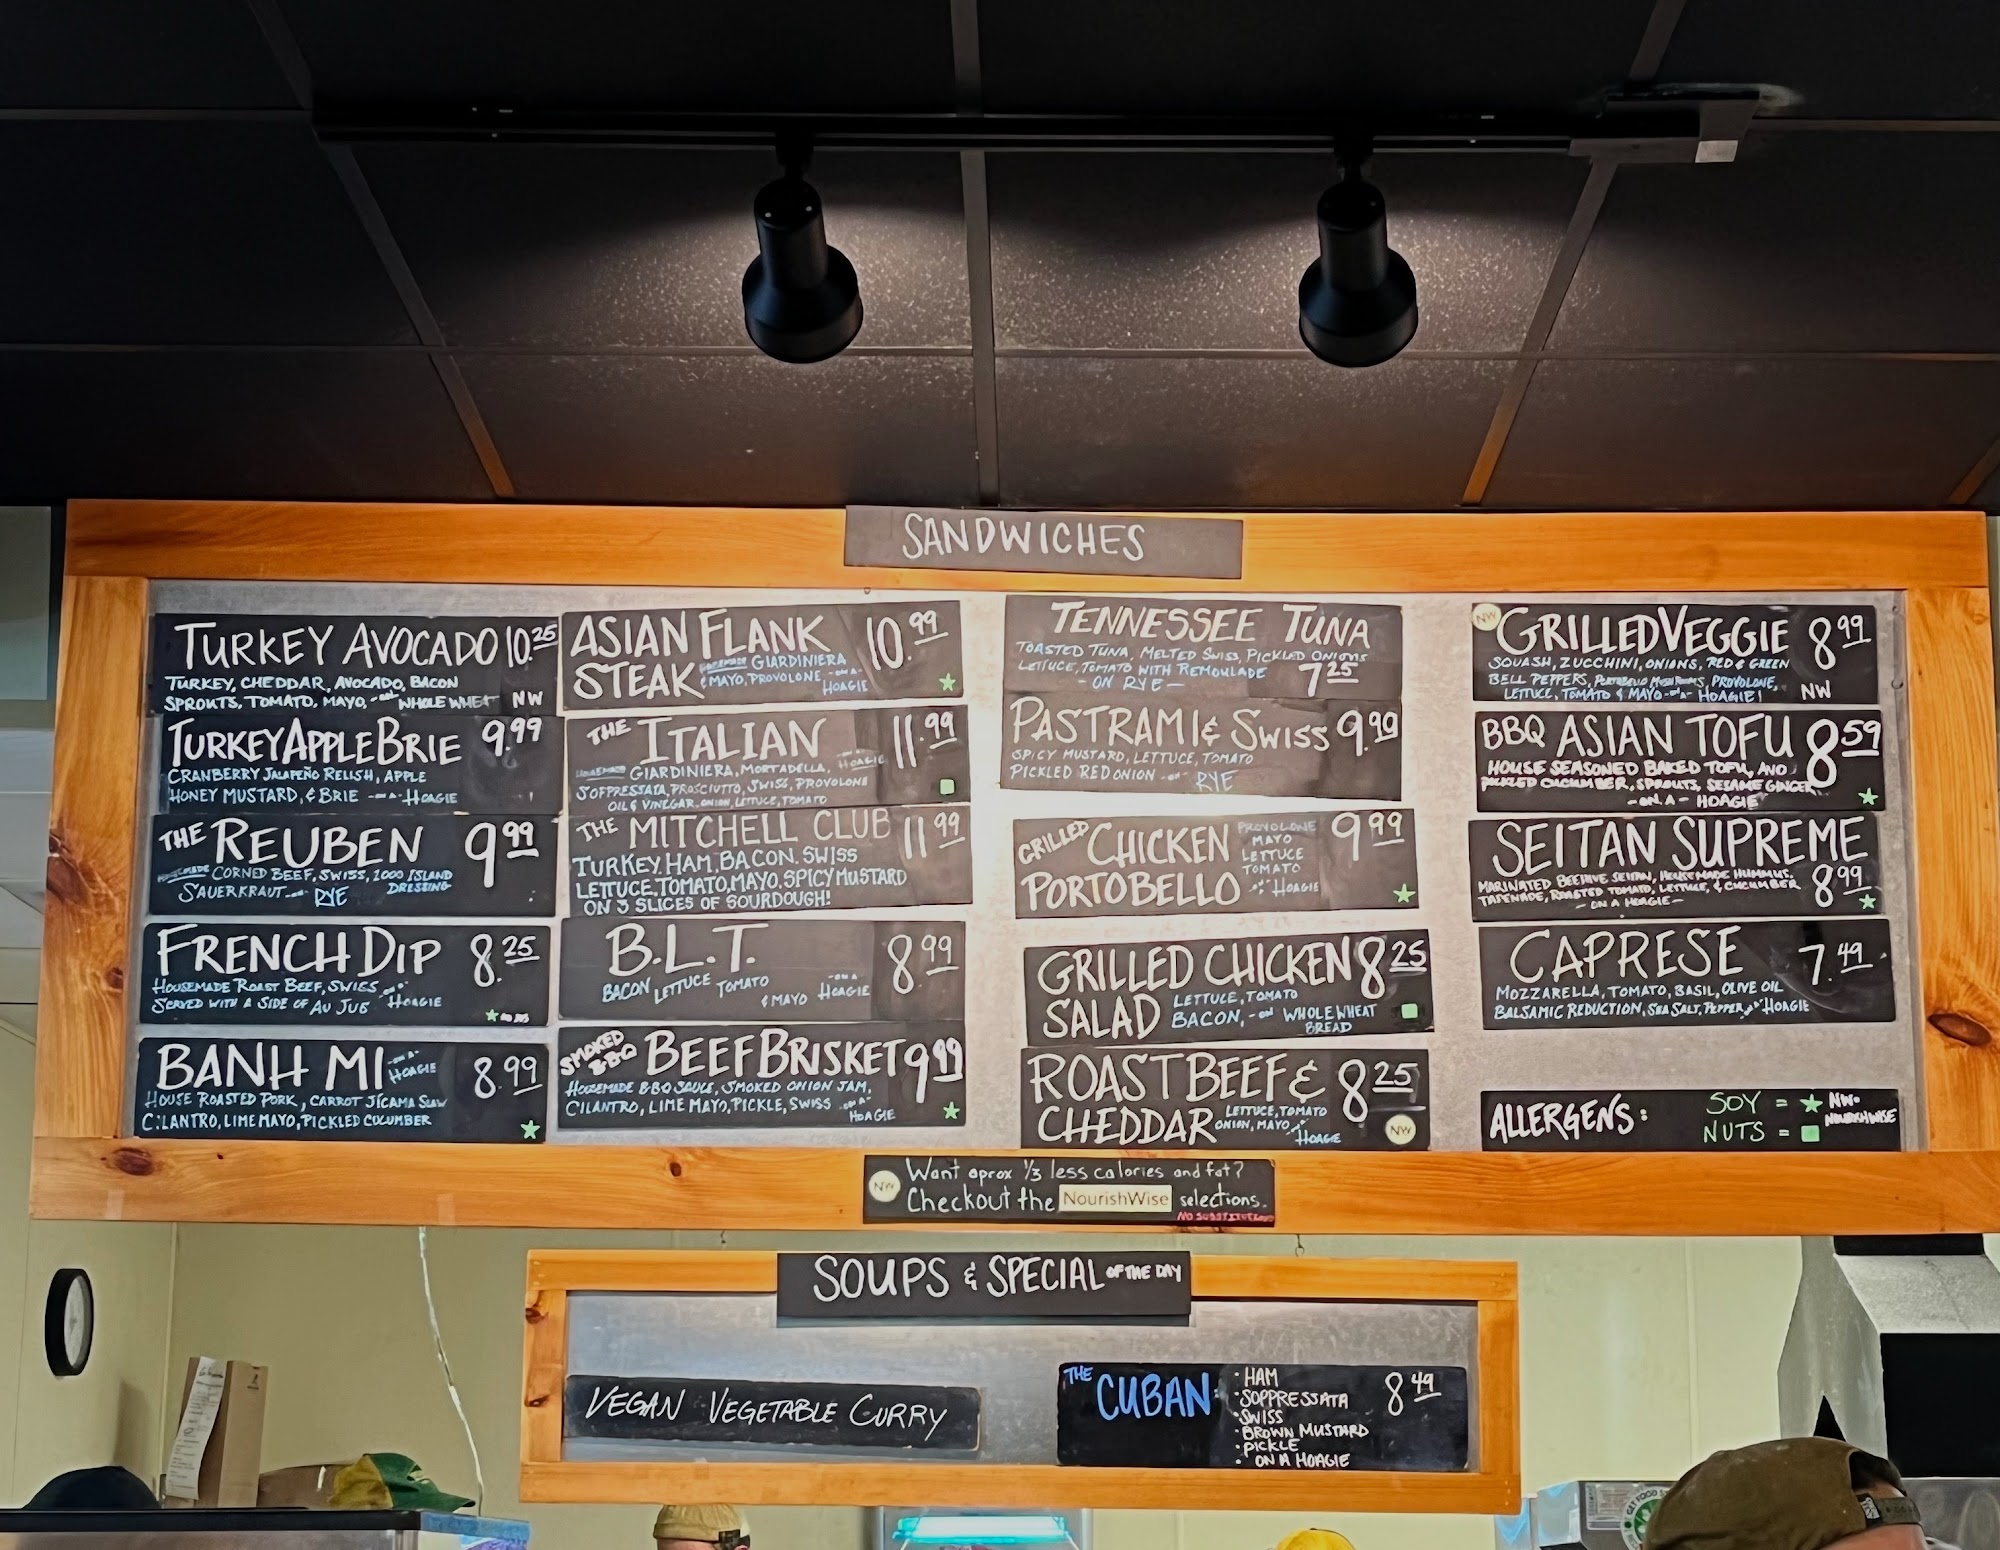 SANDWICHES
TURKEY AVOCADO 10.25
TURKEY, CHEDDAR, AVOCADO, BACON
SPROUTS, TOMATO, MAYO, -ON- WHOLE WHEAT NW
TURKEY APPLE BRIE 9.99
CRANBERRY JALAPEÑO RELISH, APPLE
HONEY MUSTARD, & BRIE -ON-A- HOAGIE
THE REUBEN 9.99
HOMEMADE CORNED BEEF, SWISS, 1000 ISLAND
DRESSING
SAUERKRAUT -ON- RYE
FRENCH DIP 8.25
HOUSEMADE ROAST BEEF, SWISS -ON-A-
SERVED WITH A SIDE OF AU JUS HOAGIE
BANH MI -ON-A- HOAGIE 8.99
HOUSE ROASTED PORK, CARROT JÍCAMA SLAW
CILANTRO, LIME MAYO, PICKLED CUCUMBER
ASIAN FLANK 10.99
STEAK GIARDINIERA
& MAYO, PROVOLONE -ON-A-
HOAGIE
THE ITALIAN 11.99
GIARDINIERA, MORTADELLA, HOAGIE
SOPPRESSATA, PROSCIUTTO, SWISS, PROVOLONE
OIL & VINEGAR, ONION, LETTUCE, TOMATO
THE MITCHELL CLUB 11.99
TURKEY, HAM, BACON, SWISS
LETTUCE, TOMATO, MAYO, SPICY MUSTARD
ON 3 SLICES OF SOURDOUGH!
B.L.T. 8.99
BACON LETTUCE TOMATO -ON A-
& MAYO HOAGIE
SMOKED BBQ BEEF BRISKET 9.99
HOUSEMADE BBQ SAUCE, SMOKED ONION JAM,
CILANTRO, LIME MAYO, PICKLE, SWISS -ON-A-
HOAGIE
TENNESSEE TUNA
TOASTED TUNA, MELTED SWISS, PICKLED ONIONS
LETTUCE, TOMATO WITH REMOULADE
-ON RYE- 7.25
PASTRAMI & SWISS 9.99
SPICY MUSTARD, LETTUCE, TOMATO
PICKLED RED ONION -ON- RYE
GRILLED CHICKEN 9.99
PORTOBELLO
PROVOLONE
MAYO
LETTUCE
TOMATO
HOAGIE
GRILLED CHICKEN 8.25
SALAD LETTUCE, TOMATO
BACON, -ON- WHOLE WHEAT
BREAD
ROAST BEEF & 8.25
CHEDDAR LETTUCE, TOMATO
ONION, MAYO
HOAGIE NW
NW GRILLED VEGGIE 8.99
SQUASH, ZUCCHINI, ONIONS, RED & GREEN
BELL PEPPERS, PORTOBELLO MUSHROOMS, PROVOLONE,
LETTUCE, TOMATO & MAYO -ON-A- HOAGIE! NW
BBQ ASIAN TOFU 8.59
HOUSE SEASONED BAKED TOFU, AND
PICKLED CUCUMBER, SPROUTS, SESAME GINGER
-ON A- HOAGIE
SEITAN SUPREME
MARINATED BEEHIVE SEITAN, HOUSEMADE HUMMUS,
TAPENADE, ROASTED TOMATO, LETTUCE, & CUCUMBER 8.99
-ON A HOAGIE-
CAPRESE 7.49
MOZZARELLA, TOMATO, BASIL, OLIVE OIL
BALSAMIC REDUCTION, SEA SALT, PEPPER HOAGIE
ALLERGENS: SOY = ★ NW-
NOURISHWISE
NUTS =
NW Want aprox 1/3 less calories and fat?
Checkout the NourishWise selections.
SOUPS & SPECIAL OF THE DAY
VEGAN VEGETABLE CURRY
THE CUBAN: 8.49
• HAM
• SOPPRESSATA
• SWISS
• BROWN MUSTARD
• PICKLE
• ON A HOAGIE